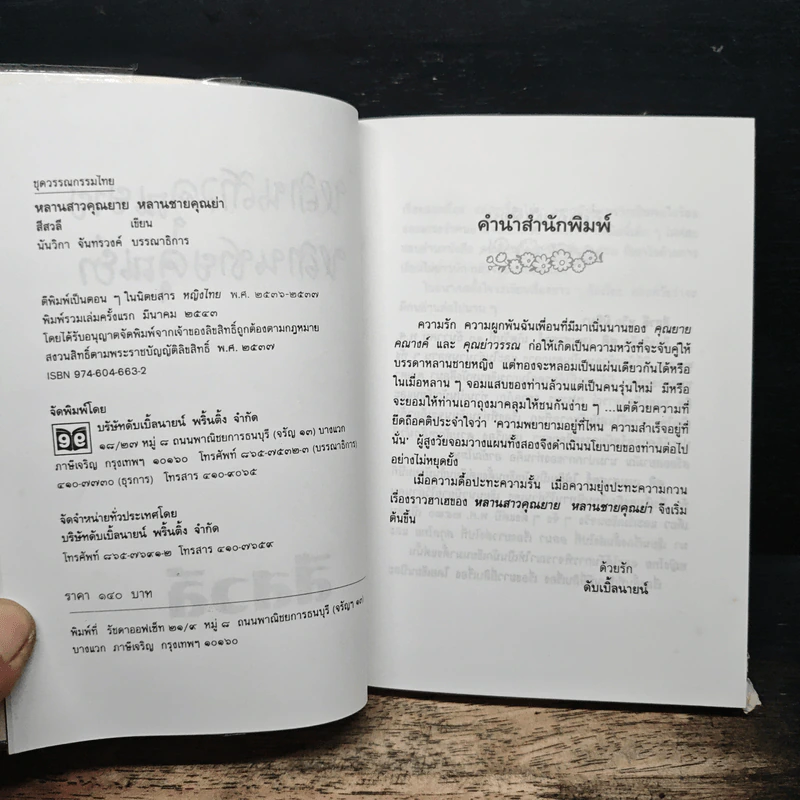 ชุดวรรณกรรมไทย
หลานสาวคุณยาย หลานชายคุณย่า
สีสวลี เขียน
นันวิกา จันทรวงค์ บรรณาธิการ
ตีพิมพ์เป็นตอน ๆ ในนิตยสาร หญิงไทย พ.ศ. ๒๕๓๖-๒๕๓๗
พิมพ์รวมเล่มครั้งแรก มีนาคม ๒๕๔๓
โดยได้รับอนุญาตจัดพิมพ์จากเจ้าของลิขสิทธิ์ถูกต้องตามกฎหมาย
สงวนสิทธิ์ตามพระราชบัญญัติลิขสิทธิ์ พ.ศ. ๒๕๓๗
ISBN 974-604-663-2
จัดพิมพ์โดย
๑๙
บริษัทดับเบิ้ลนายน์ พริ้นติ้ง จำกัด
๑๘/๒๗ หมู่ ๘ ถนนพาณิชยการธนบุรี (จรัญ ๑๓) บางแวก
ภาษีเจริญ กรุงเทพฯ ๑๐๑๖๐ โทรศัพท์ ๘๖๕-๗๕๓๒-๓ (บรรณาธิการ)
๔๑๐-๗๗๓๐ (ธุรการ) โทรสาร ๔๑๐-๙๐๖๕
จัดจำหน่ายทั่วประเทศโดย
บริษัทดับเบิ้ลนายน์ พริ้นติ้ง จำกัด
โทรศัพท์ ๘๖๕-๗๖๙๑-๒ โทรสาร ๔๑๐-๗๖๕๙
ราคา ๑๔๐ บาท
พิมพ์ที่ รัชดาออฟเซ็ท ๒๑/๙ หมู่ ๘ ถนนพาณิชยการธนบุรี (จรัญฯ ๑๓)
บางแวก ภาษีเจริญ กรุงเทพฯ ๑๐๑๖๐
คำนำสำนักพิมพ์
ความรัก ความผูกพันฉันเพื่อนที่มีมาเนิ่นนานของ คุณยาย
คณางค์ และ คุณย่าวรรณ ก่อให้เกิดเป็นความหวังที่จะจับคู่ให้
บรรดาหลานชายหญิง แต่ทองจะหลอมเป็นแผ่นเดียวกันได้หรือ
ในเมื่อหลาน ๆ จอมแสบของท่านล้วนแต่เป็นคนรุ่นใหม่ มีหรือ
จะยอมให้ท่านเอาถุงมาคลุมให้ชนกันง่าย ๆ ...แต่ด้วยความที่
ยึดถือคติประจำใจว่า 'ความพยายามอยู่ที่ไหน ความสำเร็จอยู่ที่
นั่น' ผู้สูงวัยจอมวางแผนทั้งสองจึงดำเนินนโยบายของท่านต่อไป
อย่างไม่หยุดยั้ง
เมื่อความดื้อปะทะความรั้น เมื่อความยุ่งปะทะความกวน
เรื่องราวฮาเฮของ หลานสาวคุณยาย หลานชายคุณย่า จึงเริ่ม
ต้นขึ้น
ด้วยรัก
ดับเบิ้ลนายน์